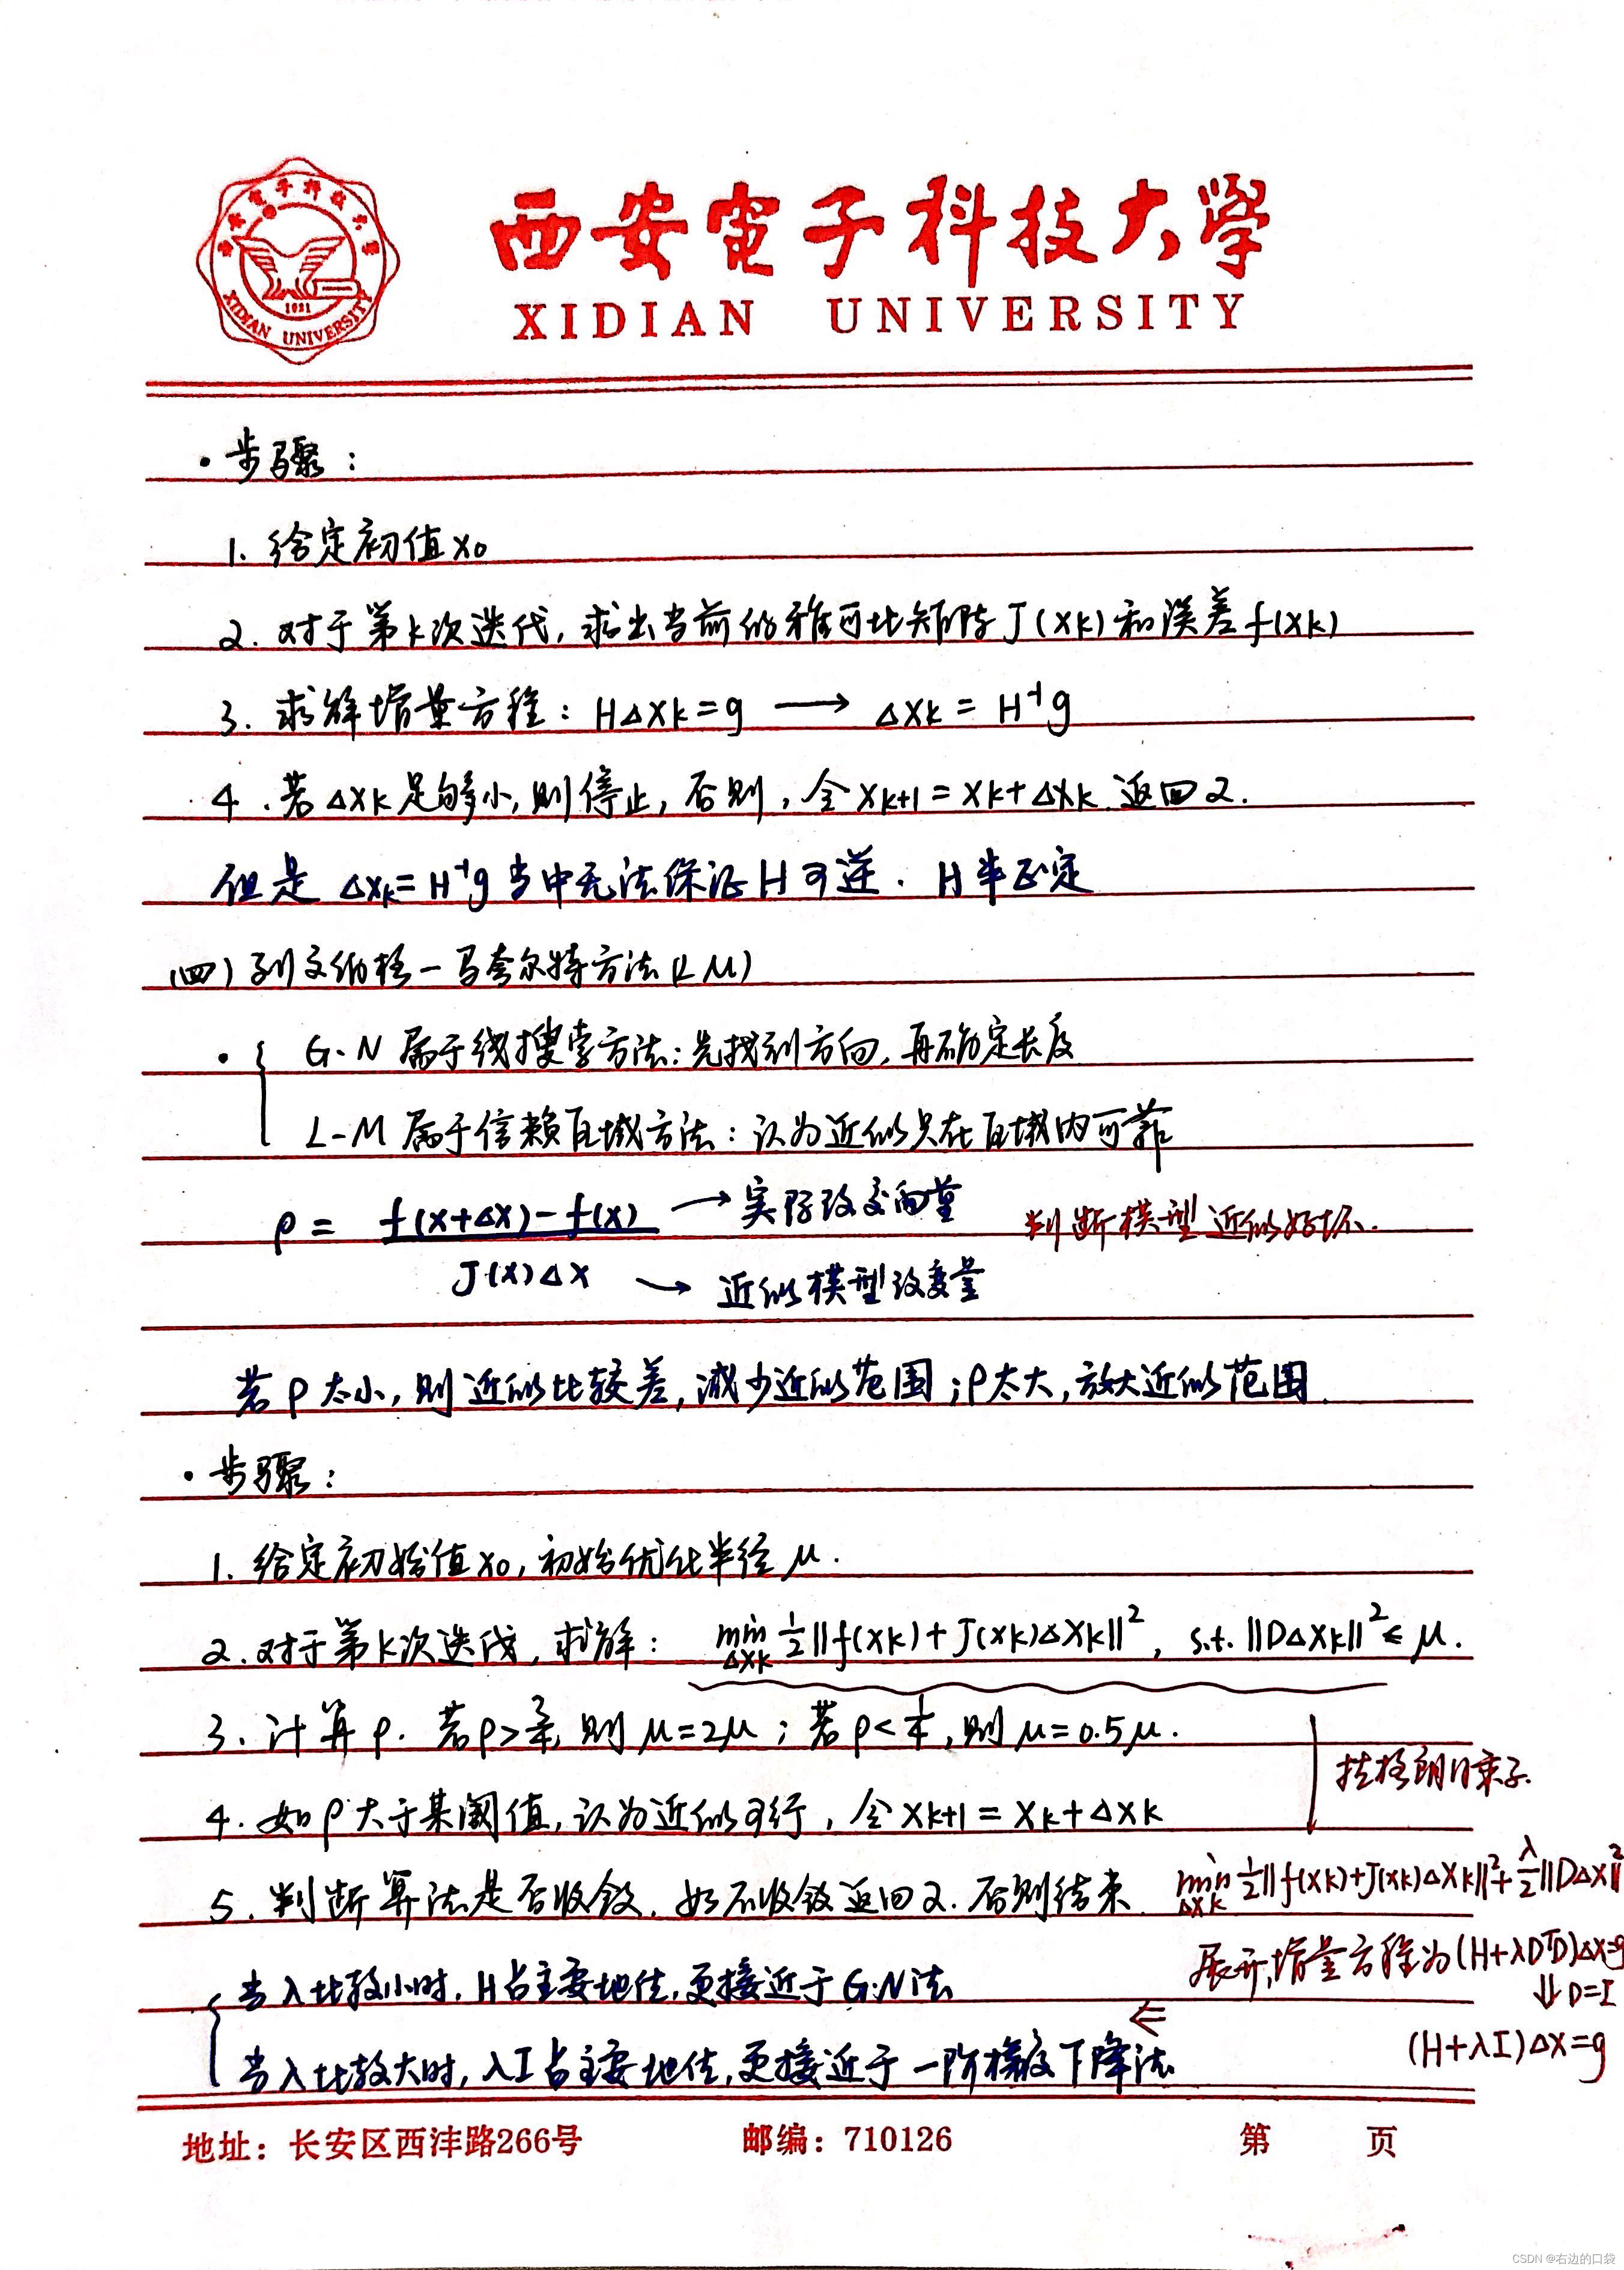 西安電子科技大學
XIDIAN UNIVERSITY
西安電子科技大學
1931
XIDIAN UNIVERSITY
· 步骤：
1. 给定初值 x0
2. 对于第k次迭代, 求出当前的雅可比矩阵 J(xk) 和误差 f(xk)
3. 求解增量方程: HΔxk=g → Δxk = H⁻¹g
4. 若 Δxk 足够小, 则停止, 否则, 令 xk+1 = xk+Δxk 返回2.
但是 Δxk=H⁻¹g 当中无法保证 H 可逆. H 半正定
(四) 列文伯格-马夸尔特方法(LM)
· { G-N 属于线搜索方法: 先找到方向, 再确定长度
L-M 属于信赖区域方法: 认为近似只在区域内可靠
ρ = f(x+Δx)-f(x) → 实际改变向量 判断模型近似好坏.
J(x)Δx → 近似模型改变量
若 ρ 太小, 则近似比较差, 减少近似范围; ρ太大, 放大近似范围.
· 步骤:
1. 给定初始值 x0, 初始优化半径 μ.
2. 对于第k次迭代, 求解: min Δxk ½||f(xk)+J(xk)Δxk||², s.t. ||DΔxk||² ≤ μ.
3. 计算 ρ. 若ρ>¾, 则 μ=2μ; 若 ρ<¼, 则 μ=0.5μ.
拉格朗日乘子.
4. 如 ρ 大于某阈值, 认为近似可行, 令 xk+1 = xk+Δxk
5. 判断算法是否收敛. 如不收敛返回2. 否则结束.
min Δxk ½||f(xk)+J(xk)Δxk||²+λ/2||DΔx||²
展开, 增量方程为(H+λDᵀD)Δx=g
⇓ D=I
(H+λI)Δx=g
⇐
{ 当λ比较小时, H占主要地位, 更接近于G-N法
当λ比较大时, λI占主要地位, 更接近于一阶梯度下降法
地址：长安区西沣路266号 邮编：710126 第 页
CSDN @右边的口袋